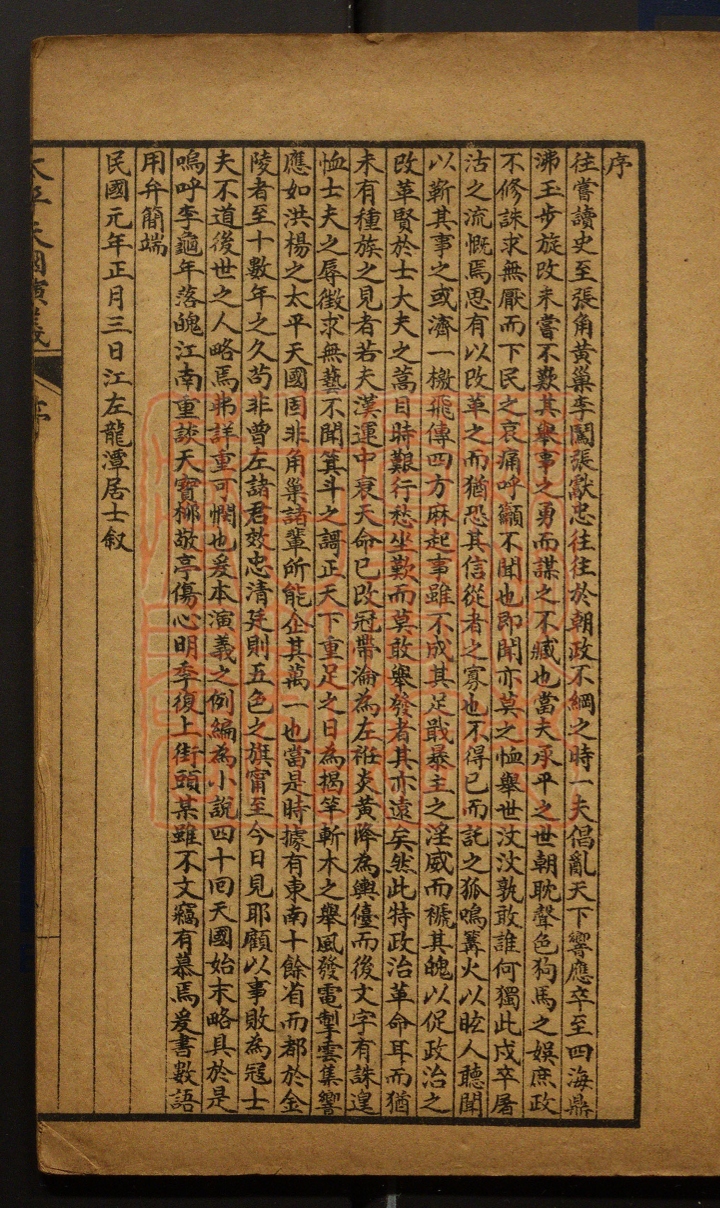 序
往嘗讀史至張角黃巢李闖張獻忠往往於朝政不綱之時一夫倡亂天下響應卒至四海鼎
沸玉步旋改未嘗不歎其舉事之勇而謀之不臧也當夫承平之世朝耽聲色狗馬之娛庶政
不修誅求無厭而下民之哀痛呼籲不聞也即聞亦莫之恤舉世汶汶孰敢誰何獨此戍卒屠
沽之流慨焉思有以改革之而猶恐其信從者之寡也不得已而託之狐鳴篝火以眩人聽聞
以蘄其事之或濟一檄飛傳四方麻起事雖不成其足戢暴主之淫威而褫其魄以促政治之
改革賢於士大夫之蒿目時艱行愁坐歎而莫敢舉發者其亦遠矣然此特政治革命耳而猶
未有種族之見者若夫漢運中衰天命已改冠帶淪為左袵炎黃降為輿儓而後文字有誅遑
恤士夫之辱徵求無藝不聞箕斗之謌正天下重足之日為揭竿斬木之舉風發電掣雲集響
應如洪楊之太平天國固非角巢諸輩所能企其萬一也當是時據有東南十餘省而都於金
陵者至十數年之久苟非曾左諸君效忠清廷則五色之旗甯至今日見耶顧以事敗為冦士
夫不道後世之人略焉弗詳重可憫也爰本演義之例編為小說四十回天國始末略具於是
嗚呼李龜年落魄江南重談天寶柳敬亭傷心明季復上街頭某雖不文竊有慕焉爰書數語
用弁簡端
民國元年正月三日江左龍潭居士叙
太平天國演義